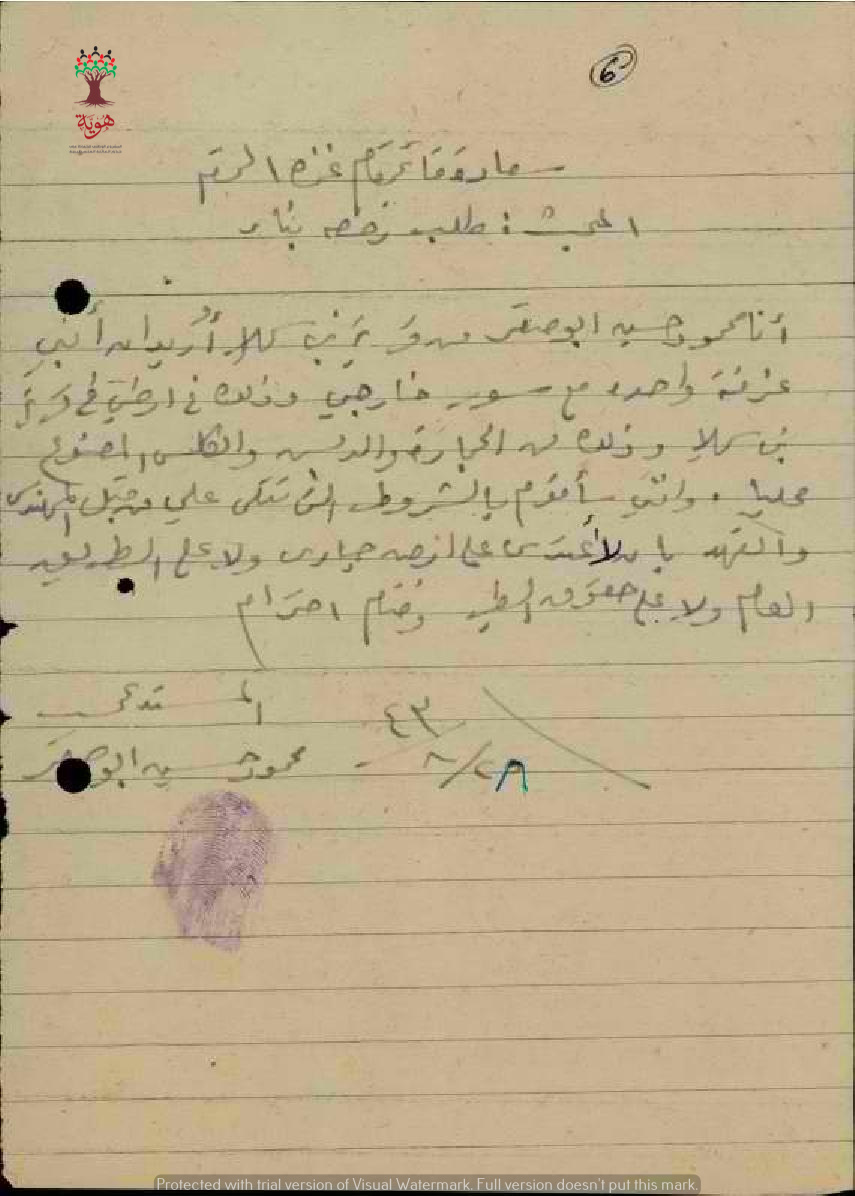 6
هوية
سعادة قائمقام غزه المحترم
المبحث : طلب رخصه بناء
أنا محمود حسين ابو صقر من قرية بني سهيلا أريد ان أبني
غرفة واحده مع سور خارجي وذلك في ارضي في قرية
بني سهيلا وذلك من الحجارة والدبس والكلس المصنوع
محليا . وانني سأقوم بالشروط التي تلقى علي من قبل المهندس
واتعهد بان لا أعتدى على ارض جارى ولا على الطريق
العام ولا على حقوق الغير وختام احترام
المستدعي
محمود حسين ابو صقر
٤٣
٢٨/٨
Protected with trial version of Visual Watermark. Full version doesn't put this mark.